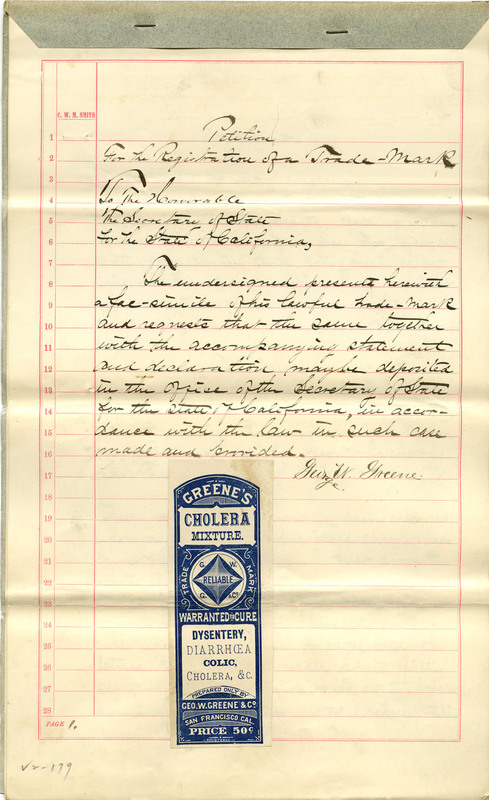 C. W. M. SMITH
1 Petition
2 For the Registration of a Trade-Mark
3
4 To The Honorable
5 the Secretary of State
6 for the State of California,
7
8 The undersigned presents herewith
9 a fac-simile of his lawful trade-mark
10 and requests that the same together
11 with the accompanying statement
12 and declaration, may be deposited
13 in the office of the Secretary of State
14 for the State of California, in accor-
15 dance with the law in such case
16 made and provided.
17 Geo. W. Greene
GREENE'S
CHOLERA
MIXTURE.
TRADE MARK
G. W.
RELIABLE
G. & Co.
WARRANTED TO CURE
DYSENTERY,
DIARRHŒA
COLIC,
CHOLERA, &C.
PREPARED ONLY BY
GEO. W. GREENE & Co
SAN FRANCISCO CAL.
PRICE 50¢
18
19
20
21
22
23
24
25
26
27
28
PAGE 1.
V2-179